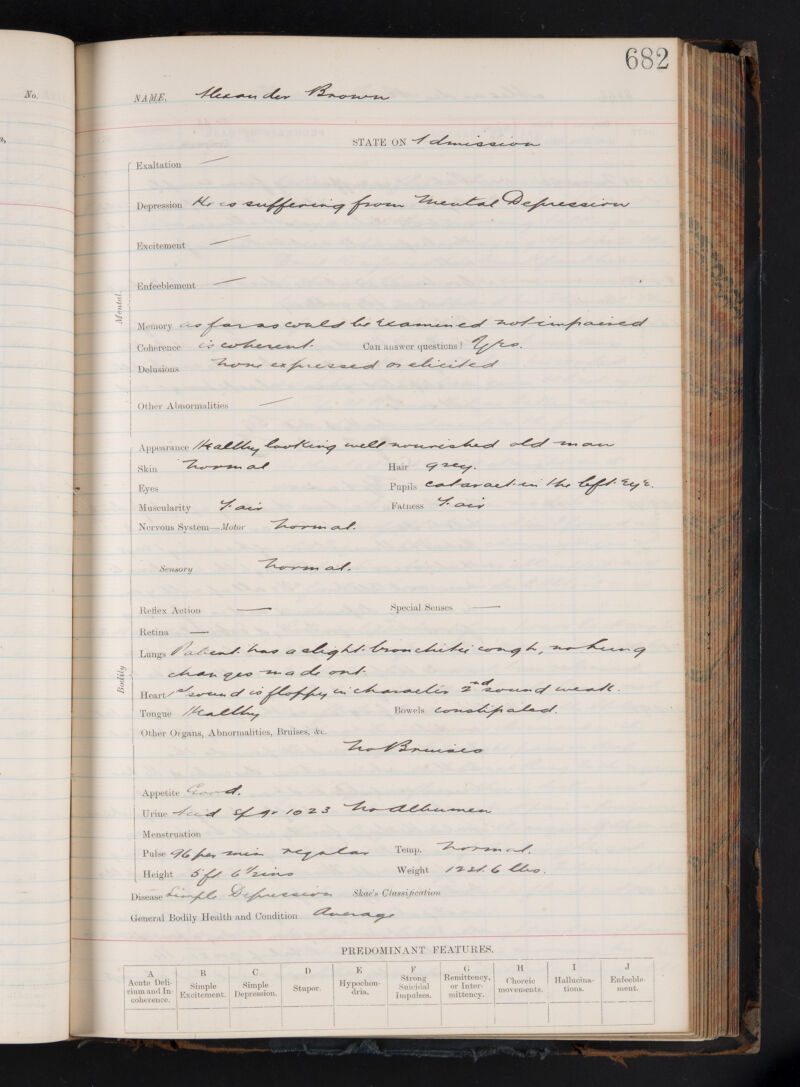 682
No.
NAME, Alexander Brown
STATE ON Admission
Exaltation —
Depression He is suffering from Mental Depression
Excitement —
Enfeeblement —
Mental.
Memory as far as could be examined not impaired
Coherence is coherent. Can answer questions? Yes.
Delusions None expressed or elicited
Other Abnormalities —
Appearance Healthy looking well nourished old man
Skin Normal Hair grey.
Eyes Pupils cataract in the left eye.
Muscularity Fair Fatness Fair
Nervous System—Motor Normal.
Sensory Normal.
Reflex Action — Special Senses —
Retina —
Bodily
Lungs Patient has a slight bronchitic cough, no lung
changes made out
Heart 1st sound is floppy in character 2nd sound weak.
Tongue Healthy Bowels constipated.
Other Organs, Abnormalities, Bruises, &c.
No Bruises
Appetite Good.
Urine Acid Sp gr 1023 No Albumen
Menstruation
Pulse 96 per min regular Temp. Normal.
Height 5 ft 6 1/2 ins Weight 12 st. 6 lbs.
Disease Simple Depression Skae's Classification
General Bodily Health and Condition Average
PREDOMINANT FEATURES.
A B C D E F G H I J
Acute Delirium and Incoherence. Simple Excitement. Simple Depression. Stupor. Hypochondria. Strong Suicidal Impulses. Remittency, or Intermittency. Choreic movements. Hallucinations. Enfeeblement.